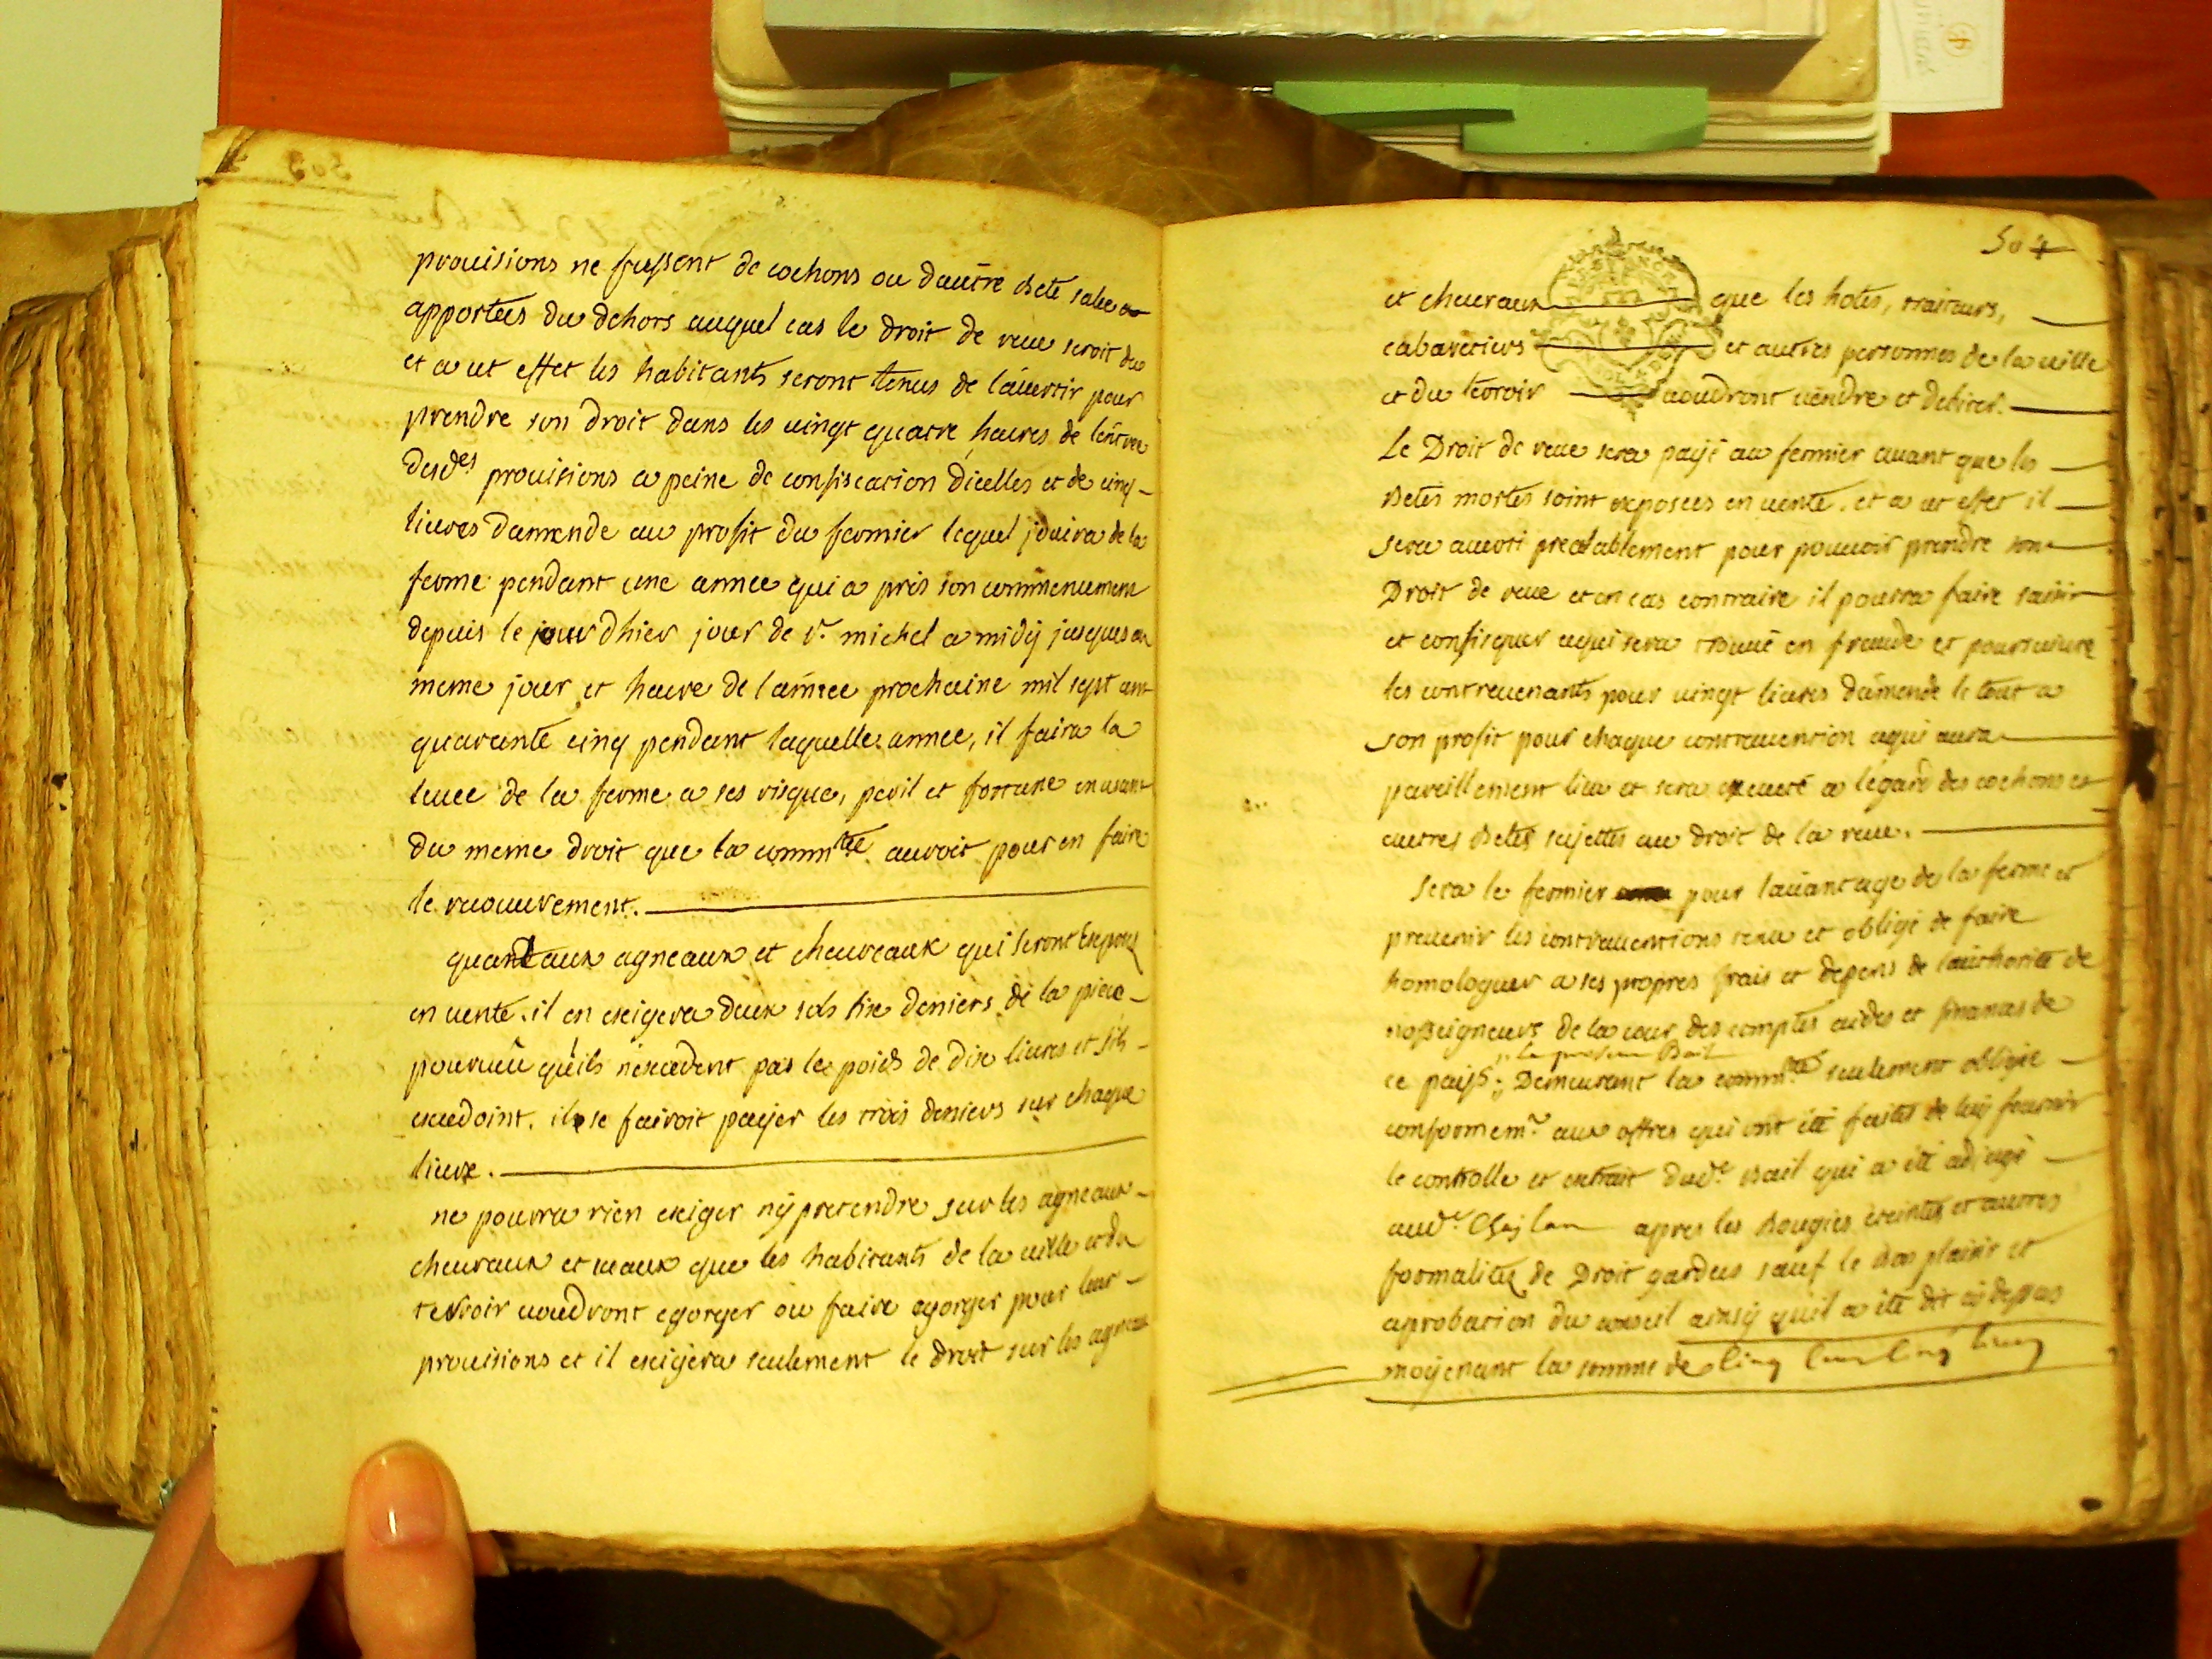 provisions ne fussent de cochons ou dautre bete salee
apportées du dehors auquel cas le droit de reve seroit du
et a cet effet les habitants seront tenus de lavertir pour
prendre son droit dans les vingt quatre heures de lentree
desdes provisions a peine de confiscation dicelles et de cinq
livres damende au profit du fermier lequel jouira de la
ferme pendant une annee qui a pris son commencement
depuis le jour dhier jour de st michel a midy jusques au
meme jour et heure de lannee prochaine mil sept cent
quarante cinq pendant laquelle annee, il faira la
levee de la ferme a ses risque, peril et fortune en usant
du meme droit que la commte auroit pour en faire
le recouvrement.
quand aux agneaux et chevreaux qui seront Exposez
en vente. il en exigera deux sols six deniers de la piece
pourveu qu'ils n'excedent pas le poids de dix livres et sils
excedoint. il se fairoit payer les trois deniers sur chaque
livre.
ne pourra rien exiger ny pretendre sur les agneaux
chevraux et veaux que les habitants de la ville et du
terroir voudront egorger ou faire egorger pour leur
provisions et il exigera seulement le droit sur les agneaux
504
et chevraux que les hotes, traiteurs,
cabaretiers et autres personnes de la ville
et du terroir voudront vendre et debiter.
Le Droit de reve sera payé au fermier avant que les
betes mortes soint exposees en vente. et a cet effet il
sera averti prealablement pour pouvoir prendre son
Droit de reve et en cas contraire il pourra faire saisir
et confisquer cequi sera trouvé en fraude et poursuivre
les contrevenants pour vingt livres damende le tout a
son profit pour chaque contravention cequi aura
pareillement lieu et sera executé a légard des cochons et
autres betes sujettes au droit de la reve.
sera le fermier pour lavantage de la ferme et
prevenir les contraventions tenu et obligé de faire
homologuer a ses propres frais et depens de lauthorité de
nosseigneurs de la cour des comptes aides et finances de
ce pays; le present Bail
Demeurant la commte seulement obligée
conformemt aux offres qui ont été faites de luy fournir
le controlle et extrait dudt bail qui a été adjugé
audt apres les bougies éteintes et autres
formalitez de Droit gardees sauf le bon plaisir et
aprobation du conseil ainsy quil a été dit cy dessus
moyenant la somme de Cinq Cens Cinq livres